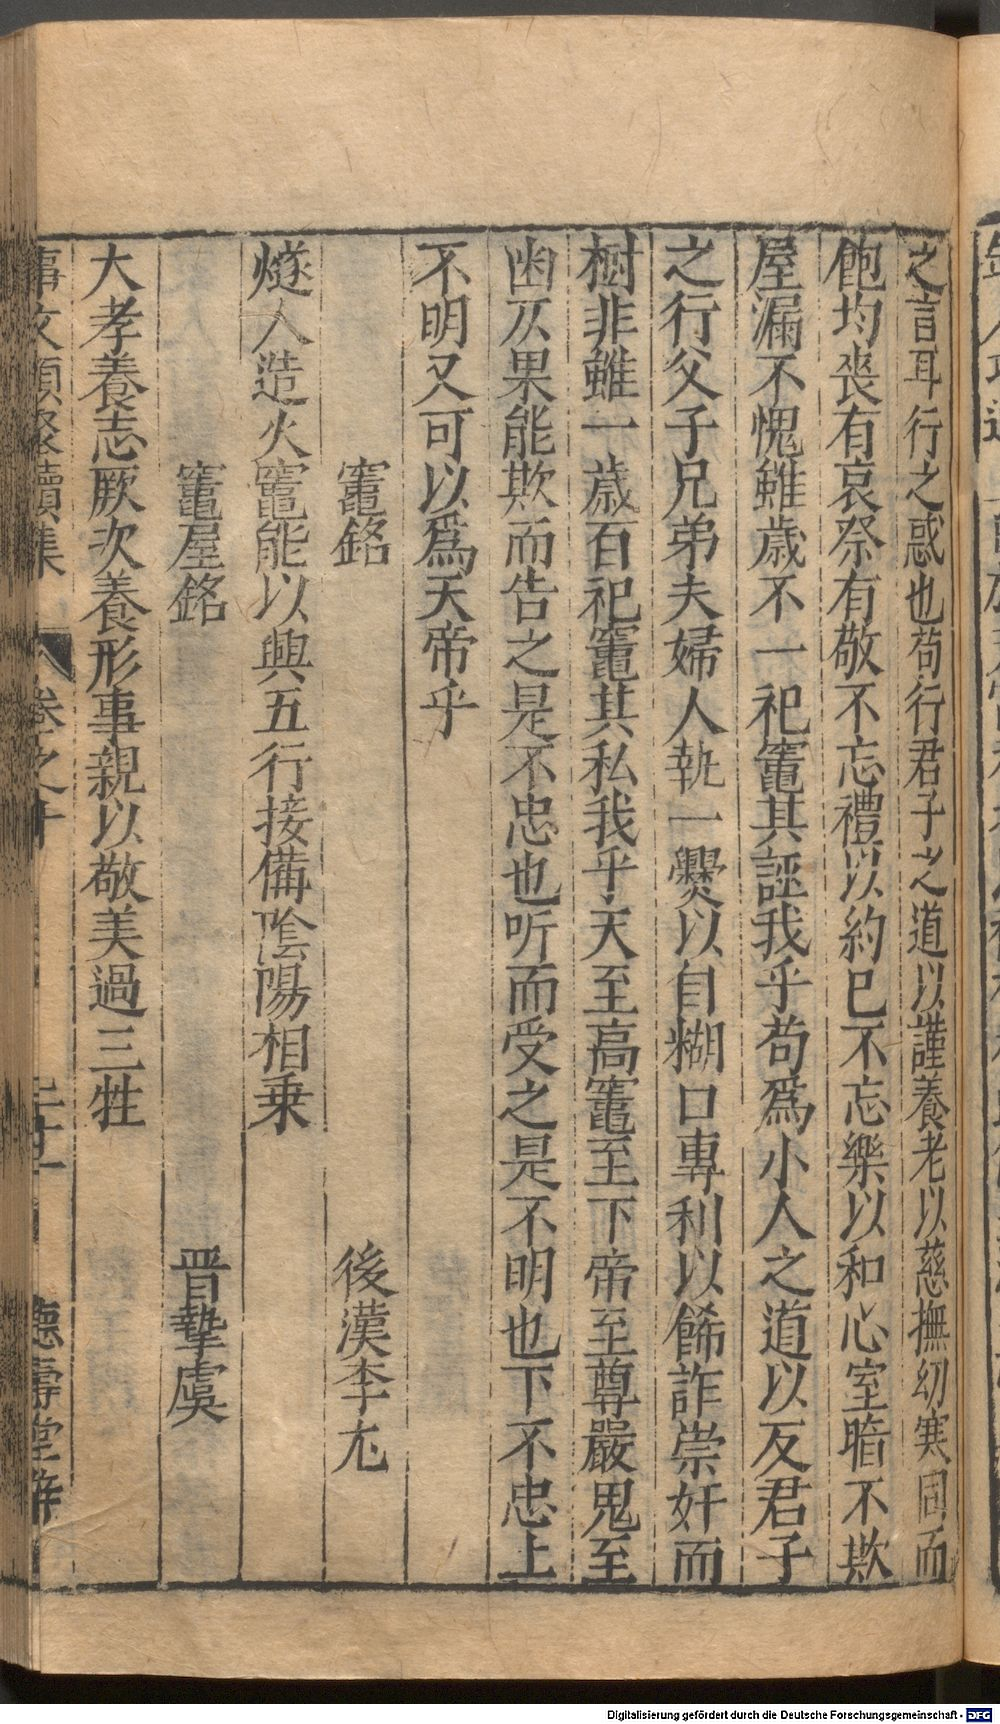 之言耳行之惑也茍行君子之道以謹養老以慈撫幼寒同而
飽均喪有哀祭有敬不忘禮以約已不忘樂以和心室暗不欺
屋漏不愧雖歲不一祀竈其誣我乎茍爲小人之道以反君子
之行父子兄弟夫婦人執一爨以自糊口專利以飾詐崇奸而
樹非雖一歲百祀竈其私我乎天至高竈至下帝至尊嚴鬼至
幽仄果能欺而告之是不忠也听而受之是不明也下不忠上
不明又可以爲天帝乎
竈銘 後漢李尤
燧人造火竈能以興五行接備陰陽相乗
竈屋銘 晋摯虞
大孝養志厥次養形事親以敬美過三牲
事文類聚續集 卷之十 德壽堂梓
Digitalisierung gefördert durch die Deutsche Forschungsgemeinschaft - DFG